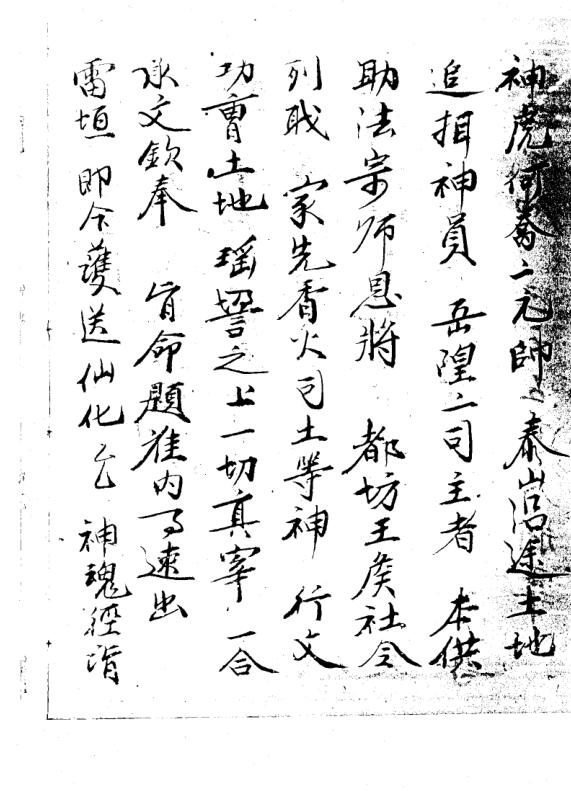 神虎何喬二元帥　泰山沿途土地
追攝神員　岳隍二司主者　本供
助法宗师恩將　都坊王侯社令
列職　家先香火司土等神　行文
功曹土地　瑶㘘之上一切真宰　一合
承文欽奉　旨命題准內事速出
雷垣　即今護送仙化亡　神魂徑詣